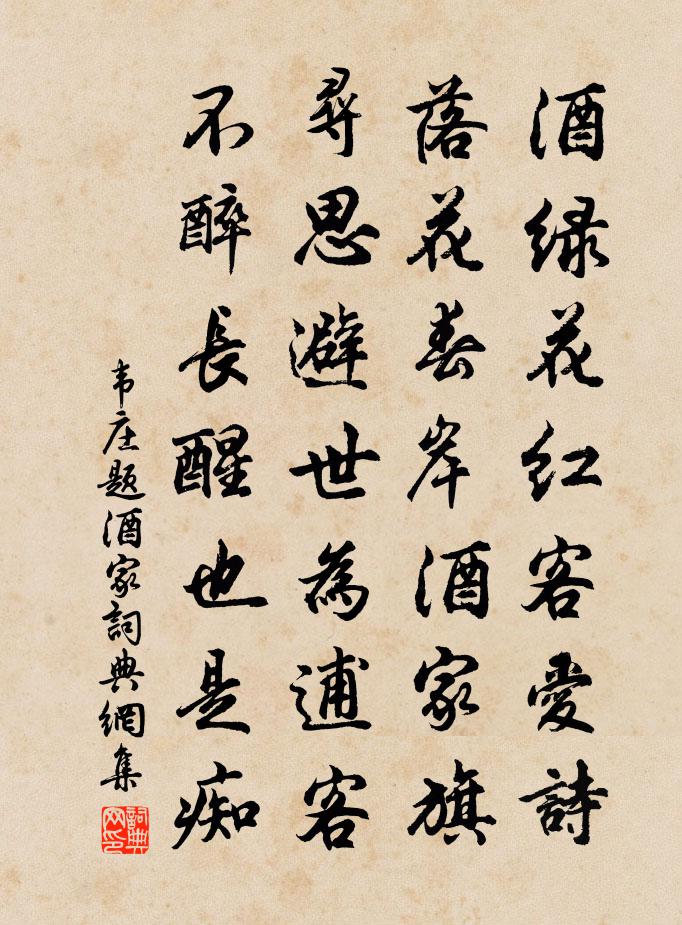 酒绿花红客愛詩
落花春岸酒家旗
尋思避世為逋客
不醉長醒也是痴
韦庄题酒家詞典網集
詞典网印